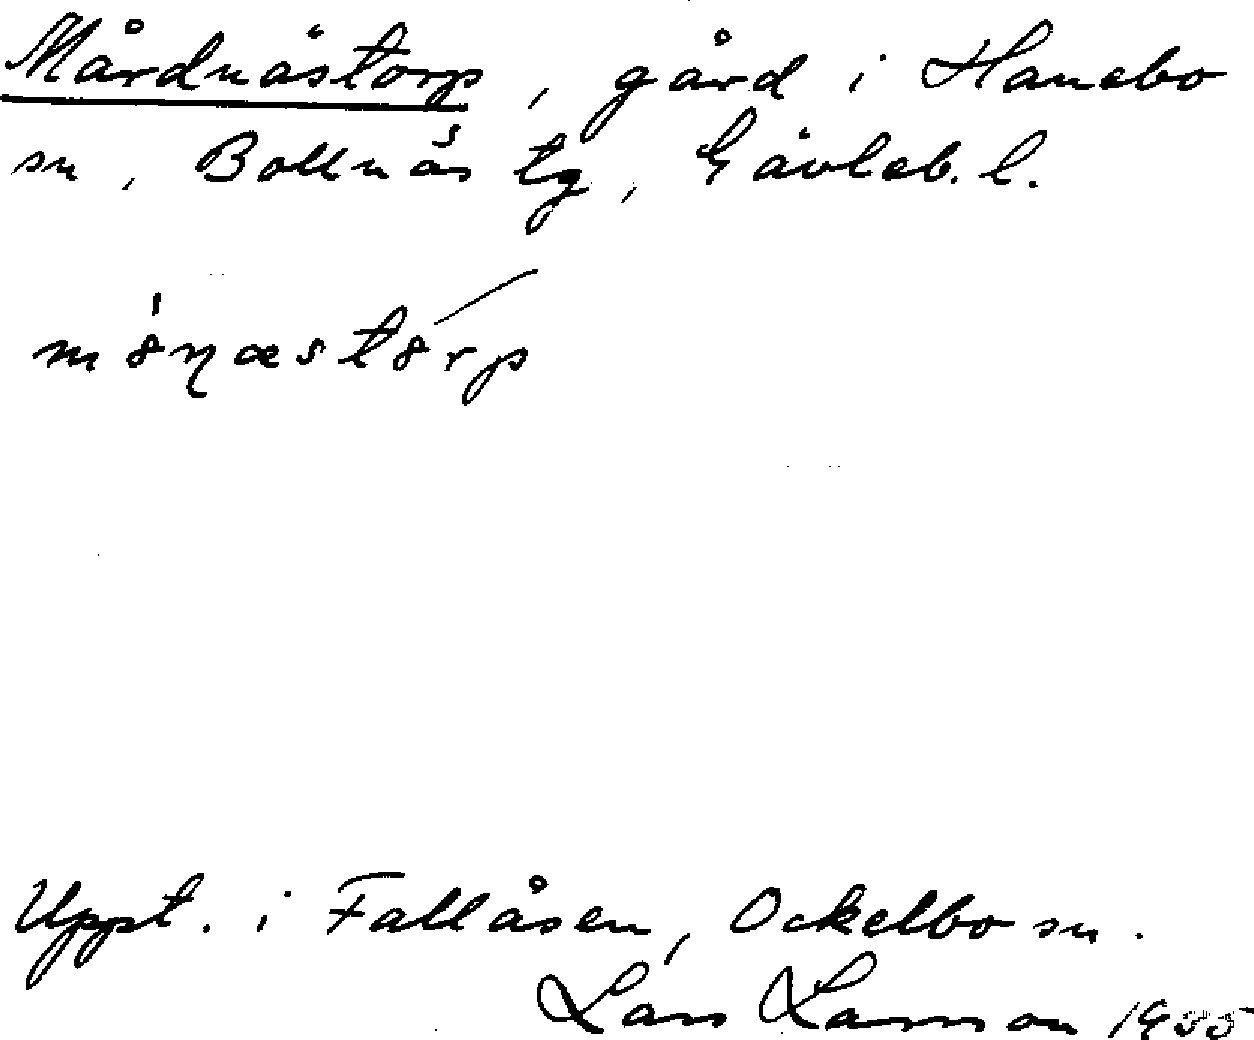 Mårdnästorp, gård i Hanebo
sn, Bollnäs tg, Gävleb. l.
Uppt. i Fallåsen, Ockelbo sn.
Lars Larsson 1955